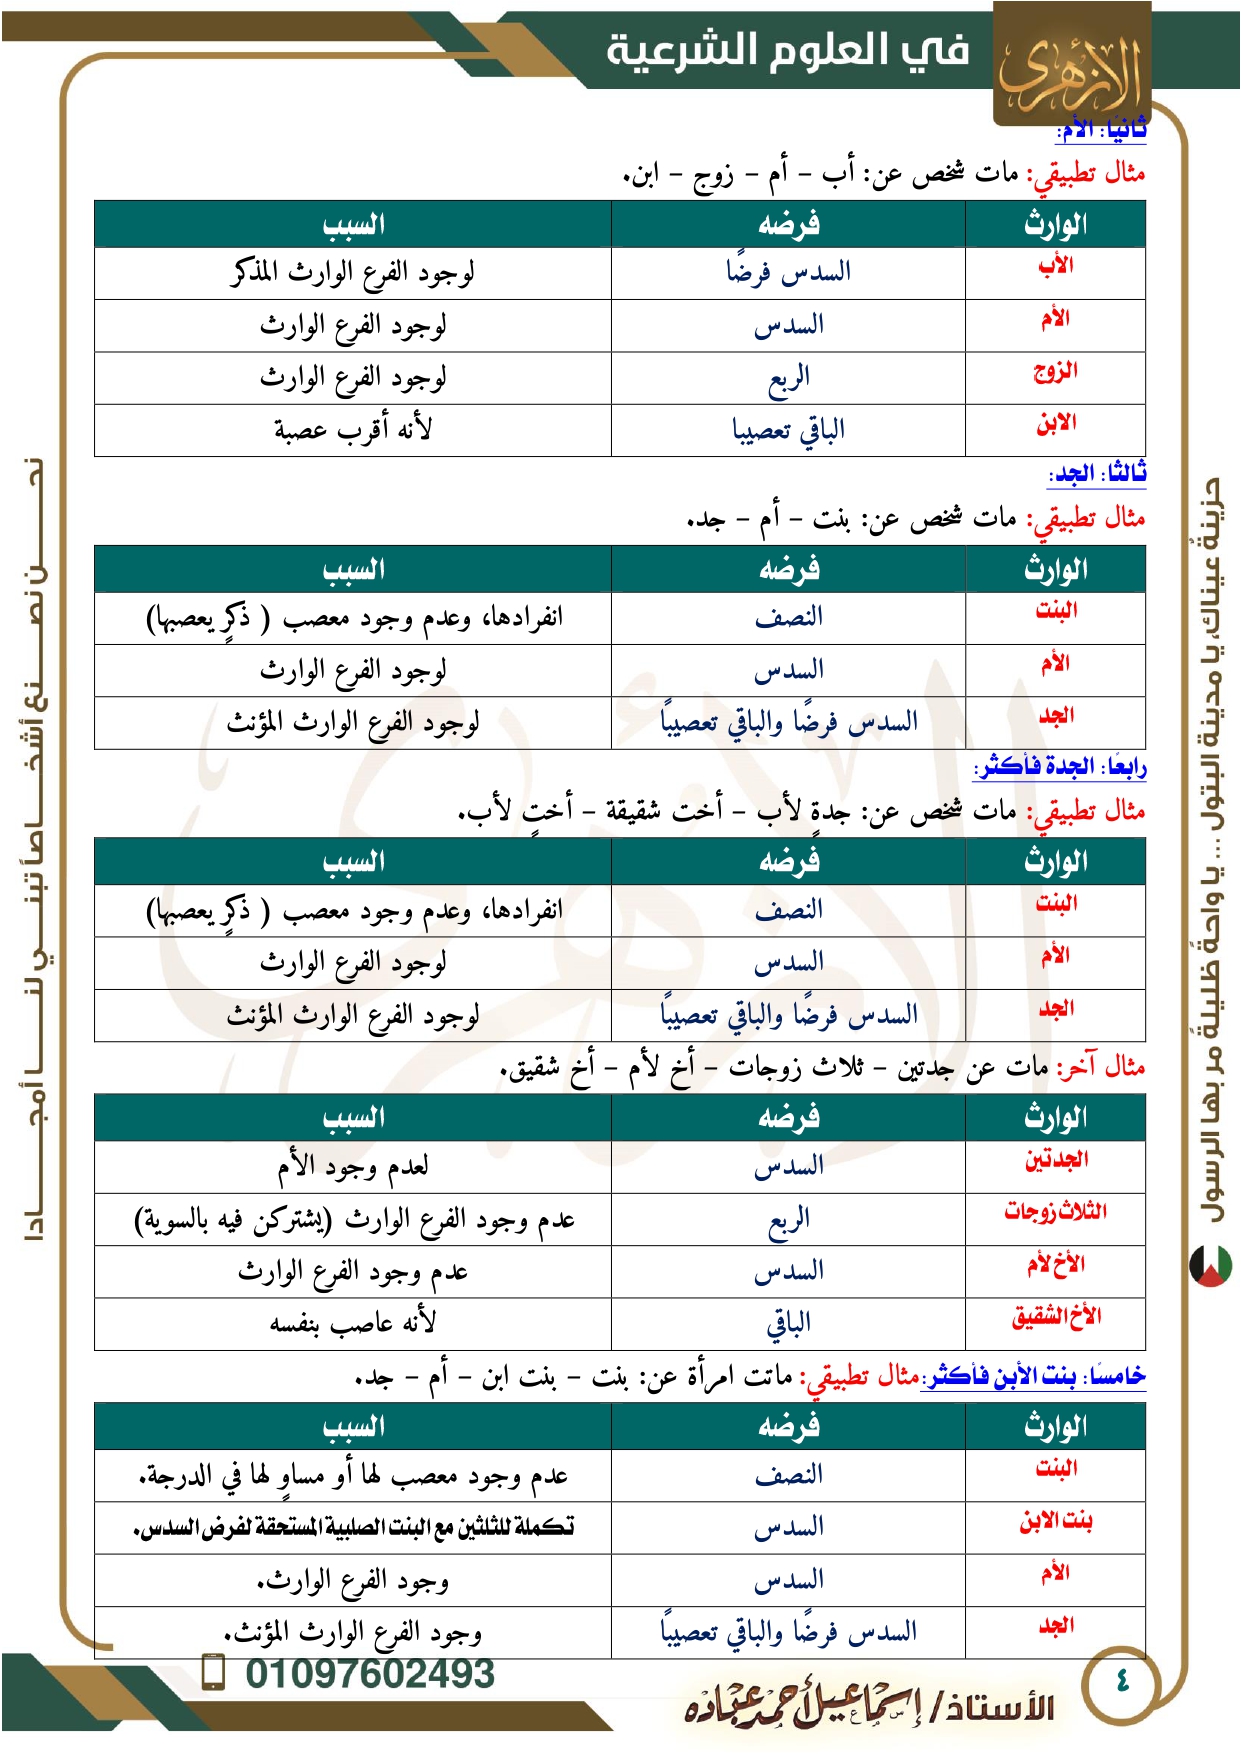 الأزهرى
في العلوم الشرعية
ثانيًا: الأم:
مثال تطبيقي: مات شخص عن: أب – أم – زوج – ابن.
الوارث فرضه السبب
الأب السدس فرضًا لوجود الفرع الوارث المذكر
الأم السدس لوجود الفرع الوارث
الزوج الربع لوجود الفرع الوارث
الابن الباقي تعصيبا لأنه أقرب عصبة
ثالثًا: الجد:
مثال تطبيقي: مات شخص عن: بنت – أم – جد.
الوارث فرضه السبب
البنت النصف انفرادها، وعدم وجود معصب ( ذكرٍ يعصبها)
الأم السدس لوجود الفرع الوارث
الجد السدس فرضًا والباقي تعصيبًا لوجود الفرع الوارث المؤنث
رابعًا: الجدة فأكثر:
مثال تطبيقي: مات شخص عن: جدةٍ لأب – أخت شقيقة – أختٍ لأب.
الوارث فرضه السبب
البنت النصف انفرادها، وعدم وجود معصب ( ذكرٍ يعصبها)
الأم السدس لوجود الفرع الوارث
الجد السدس فرضًا والباقي تعصيبًا لوجود الفرع الوارث المؤنث
مثال آخر: مات عن جدتين – ثلاث زوجات – أخ لأم – أخ شقيق.
الوارث فرضه السبب
الجدتين السدس لعدم وجود الأم
الثلاث زوجات الربع عدم وجود الفرع الوارث (يشتركن فيه بالسوية)
الأخ لأم السدس عدم وجود الفرع الوارث
الأخ الشقيق الباقي لأنه عاصب بنفسه
خامسًا: بنت الأبن فأكثر: مثال تطبيقي: ماتت امرأة عن: بنت – بنت ابن – أم – جد.
الوارث فرضه السبب
البنت النصف عدم وجود معصب لها أو مساوٍ لها في الدرجة.
بنت الابن السدس تكملة للثلثين مع البنت الصلبية المستحقة لفرض السدس.
الأم السدس وجود الفرع الوارث.
الجد السدس فرضًا والباقي تعصيبًا وجود الفرع الوارث المؤنث.
حزينةٌ عيناك، يا مدينة البتول ... يا واحةً ظليلةً مر بها الرسول
نحـــــن نصـــــنع أشخـــــاصاً تبنـــــي لنـــــا أمجـــــادا
01097602493
الأستاذ/ إسماعيل أحمد عباده
٤